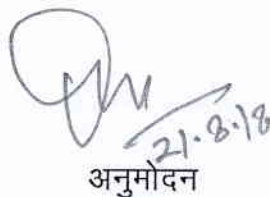 21.8.18
अनुमोदन